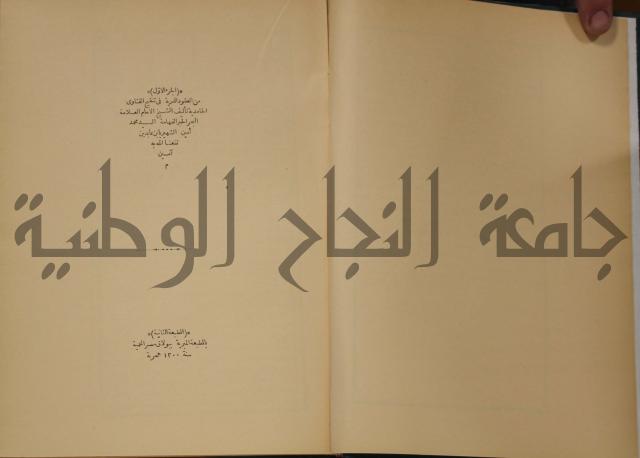 ﴿(الجزء الاول)﴾
من العقود الدرية فى تنقيح الفتاوى
الحامدية تأليف الشيخ الامام العلامة
الحبر البحر الفهامة السيد محمد
أمين الشهير بابن عابدين
نفعنا الله به
آمين
م
جامعة النجاح الوطنية
﴿(الطبعة الثانية)﴾
بالمطبعة الميرية ببولاق مصر المحمية
سنة ١٣٠٠ هجرية